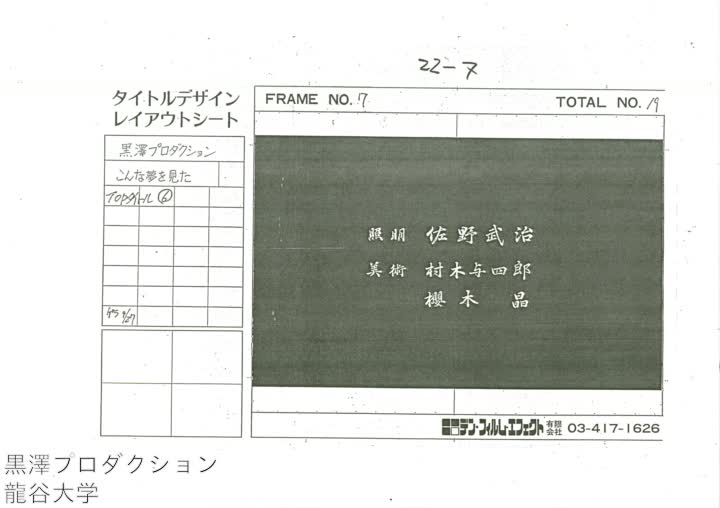 22-ヌ
タイトルデザイン
レイアウトシート
FRAME NO. 7
TOTAL NO. 19
黒澤プロダクション
こんな夢を見た
TOPタイトル ⑥
照明 佐野武治
美術 村木与四郎
櫻木 晶
デン・フィルム・エフェクト 有限会社 03-417-1626
黒澤プロダクション
龍谷大学